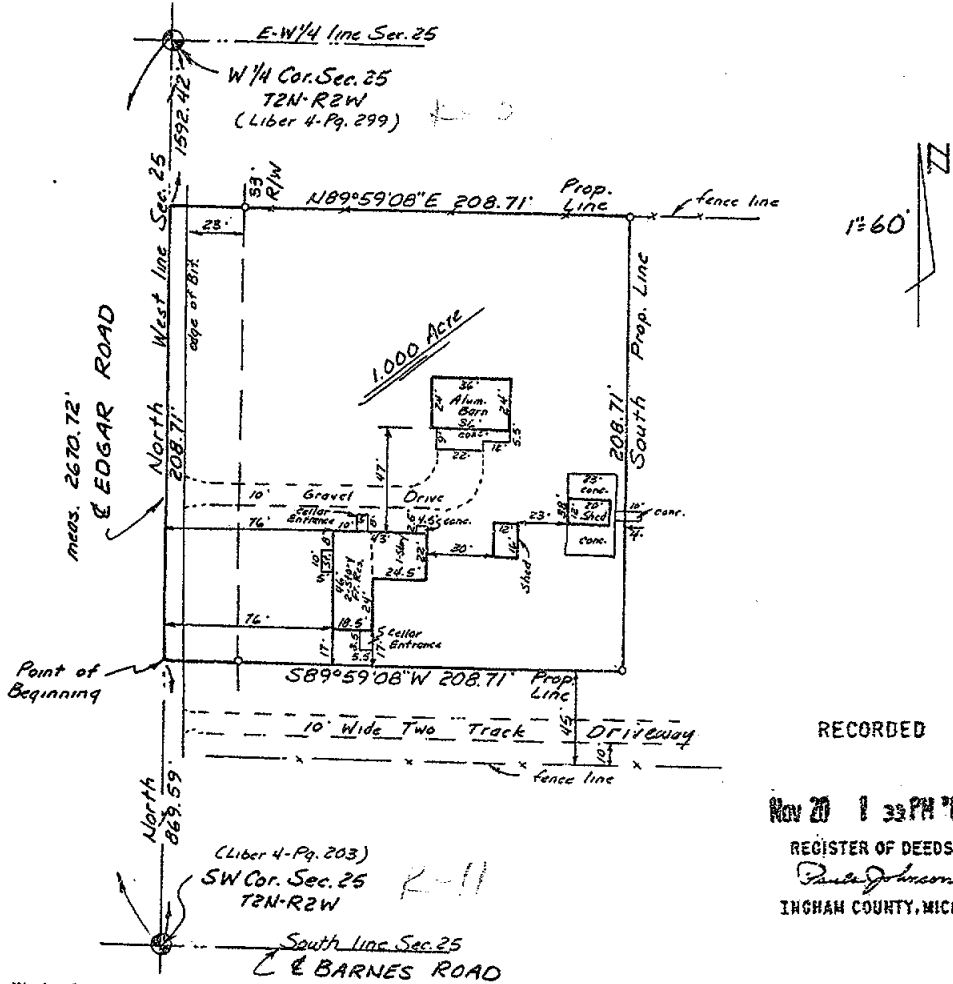 E-W 1/4 line Sec. 25
W 1/4 Cor. Sec. 25
T2N-R2W
(Liber 4-Pg. 299)
1592.42'
33'
R/W
N89°59'08"E 208.71'
Prop.
Line
fence line
1"=60'
23'
edge of Bit.
North West line Sec. 25
208.71'
meas. 2670.72'
℄ EDGAR ROAD
1.000 Acre
South Prop. Line
208.71'
36'
24'
Alum.
Barn
24'
conc.
9'
5.5'
22'
47'
10' Gravel Drive
Cellar
Entrance
10'
6'
43'
4.5'
conc.
76'
8'
10'
5'
46'
2-Story
Fr. Res.
1-Story
22'
24.5'
24'
30'
16'
Shed
23'
23'
conc.
38'
12'
20'
Shed
conc.
10'
conc.
4'
76'
18.5'
17'
5.5'
17'
Cellar
Entrance
Point of
Beginning
S89°59'08"W 208.71'
Prop.
Line
45'
10' Wide Two Track Driveway
10'
fence line
North
869.59'
(Liber 4-Pg. 203)
SW Cor. Sec. 25
T2N-R2W
R-11
South line Sec. 25
℄ BARNES ROAD
RECORDED
Nov 20 1 33 PM
REGISTER OF DEEDS
Paula Johnson
INGHAM COUNTY, MICH